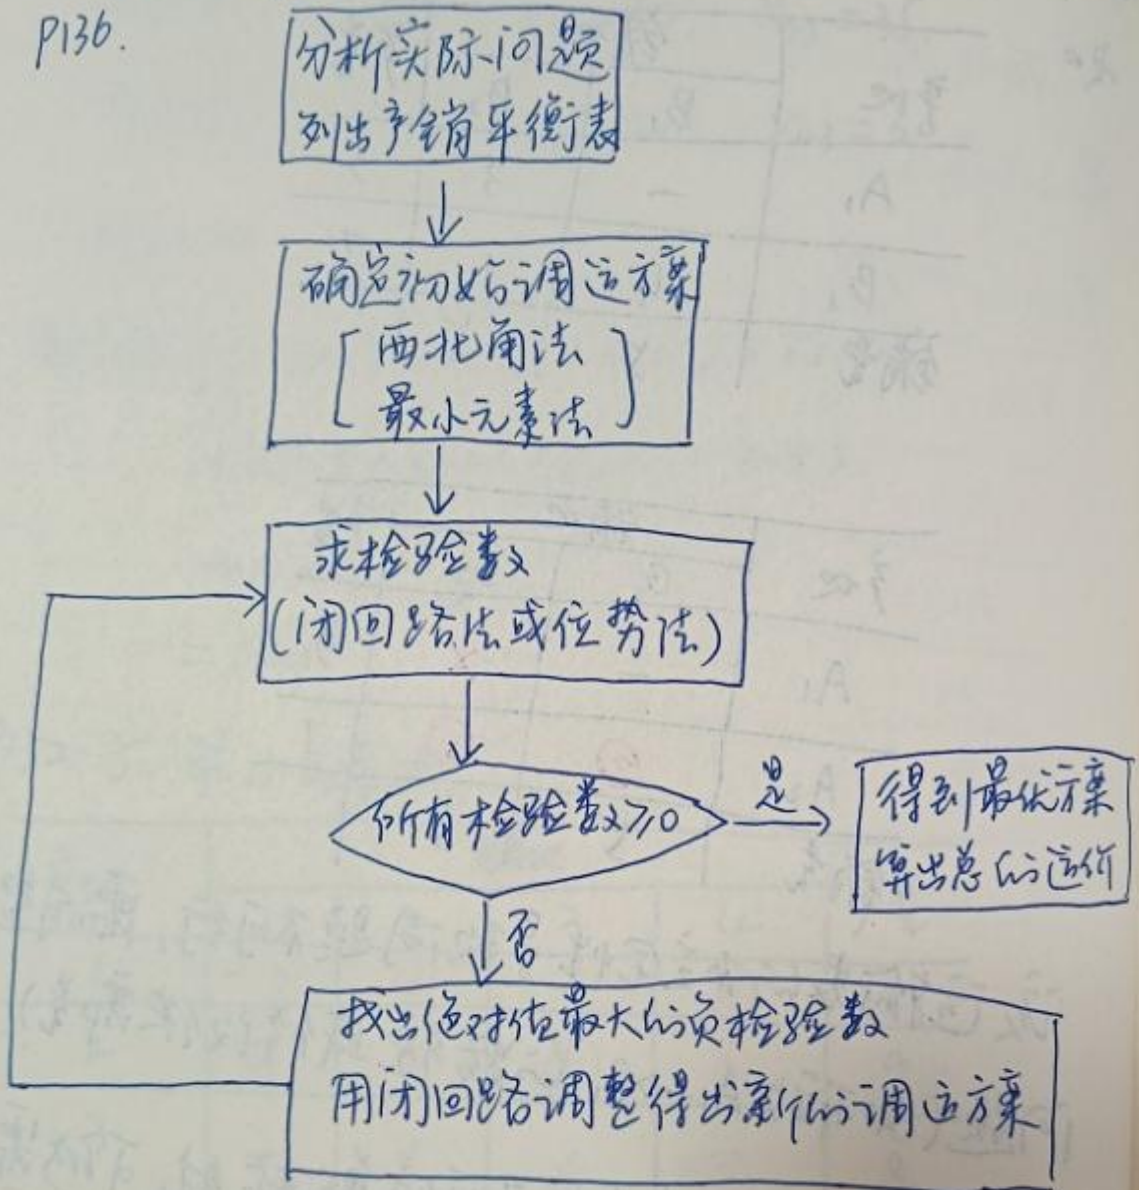 P136.
分析实际问题
列出产销平衡表
确定初始调运方案
西北角法
最小元素法
求检验数
(闭回路法或位势法)
所有检验数≥0
是
得到最优方案
算出总的运价
否
找出绝对值最大的负检验数
用闭回路调整得出新的调运方案